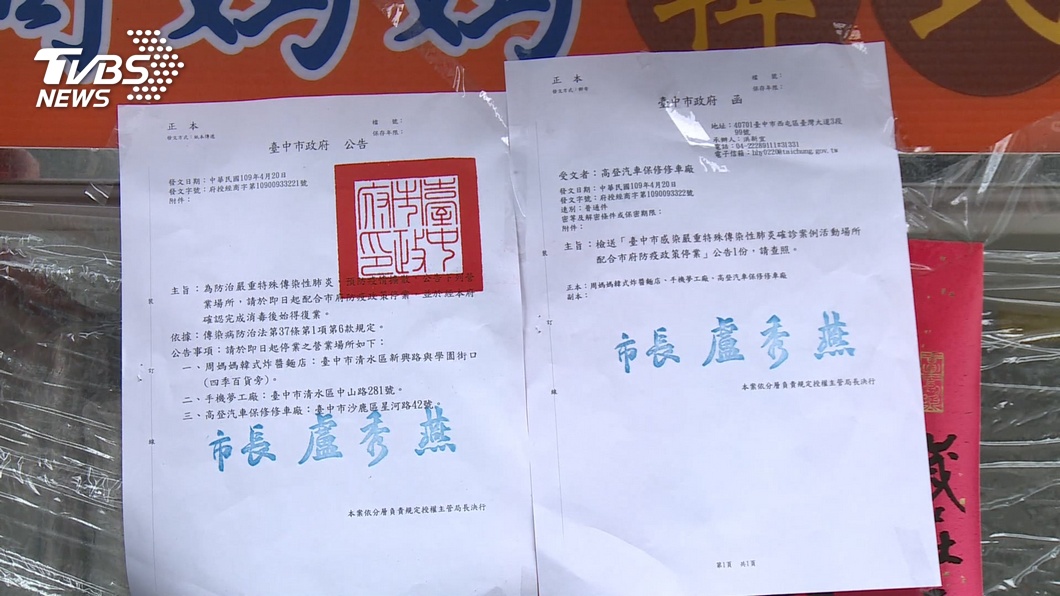 TVBS
NEWS
周媽媽韓式
正 本
發文方式：紙本傳遞
檔 號：
保存年限：
臺中市政府 公告
發文日期：中華民國109年4月20日
發文字號：府授經商字第10900933221號
附件：
臺中市政府印
主旨：為防治嚴重特殊傳染性肺炎，預防疫情擴散，公告下列營
業場所，請於即日起配合市府防疫政策停業，並於經本府
確認完成消毒後始得復業。
依據：傳染病防治法第37條第1項第6款規定。
公告事項：請於即日起停業之營業場所如下：
一、周媽媽韓式炸醬麵店：臺中市清水區新興路與學園街口
(四季百貨旁)。
二、手機夢工廠：臺中市清水區中山路281號。
三、高登汽車保修修車廠：臺中市沙鹿區星河路42號。
市長 盧秀燕
本案依分層負責規定授權主管局長決行
裝
訂
線
正 本
發文方式：郵寄
檔 號：
保存年限：
臺中市政府 函
地址：40701臺中市西屯區臺灣大道3段
99號
承辦人：洪新宜
電話：04-22289111#31331
電子信箱：hhy0220@taichung.gov.tw
受文者：高登汽車保修修車廠
發文日期：中華民國109年4月20日
發文字號：府授經商字第10900933222號
速別：普通件
密等及解密條件或保密期限：
附件：
主旨：檢送「臺中市感染嚴重特殊傳染性肺炎確診案例活動場所
配合市府防疫政策停業」公告1份，請查照。
正本：周媽媽韓式炸醬麵店、手機夢工廠、高登汽車保修修車廠
副本：
市長 盧秀燕
本案依分層負責規定授權主管局長決行
裝
訂
線
第1頁 共1頁